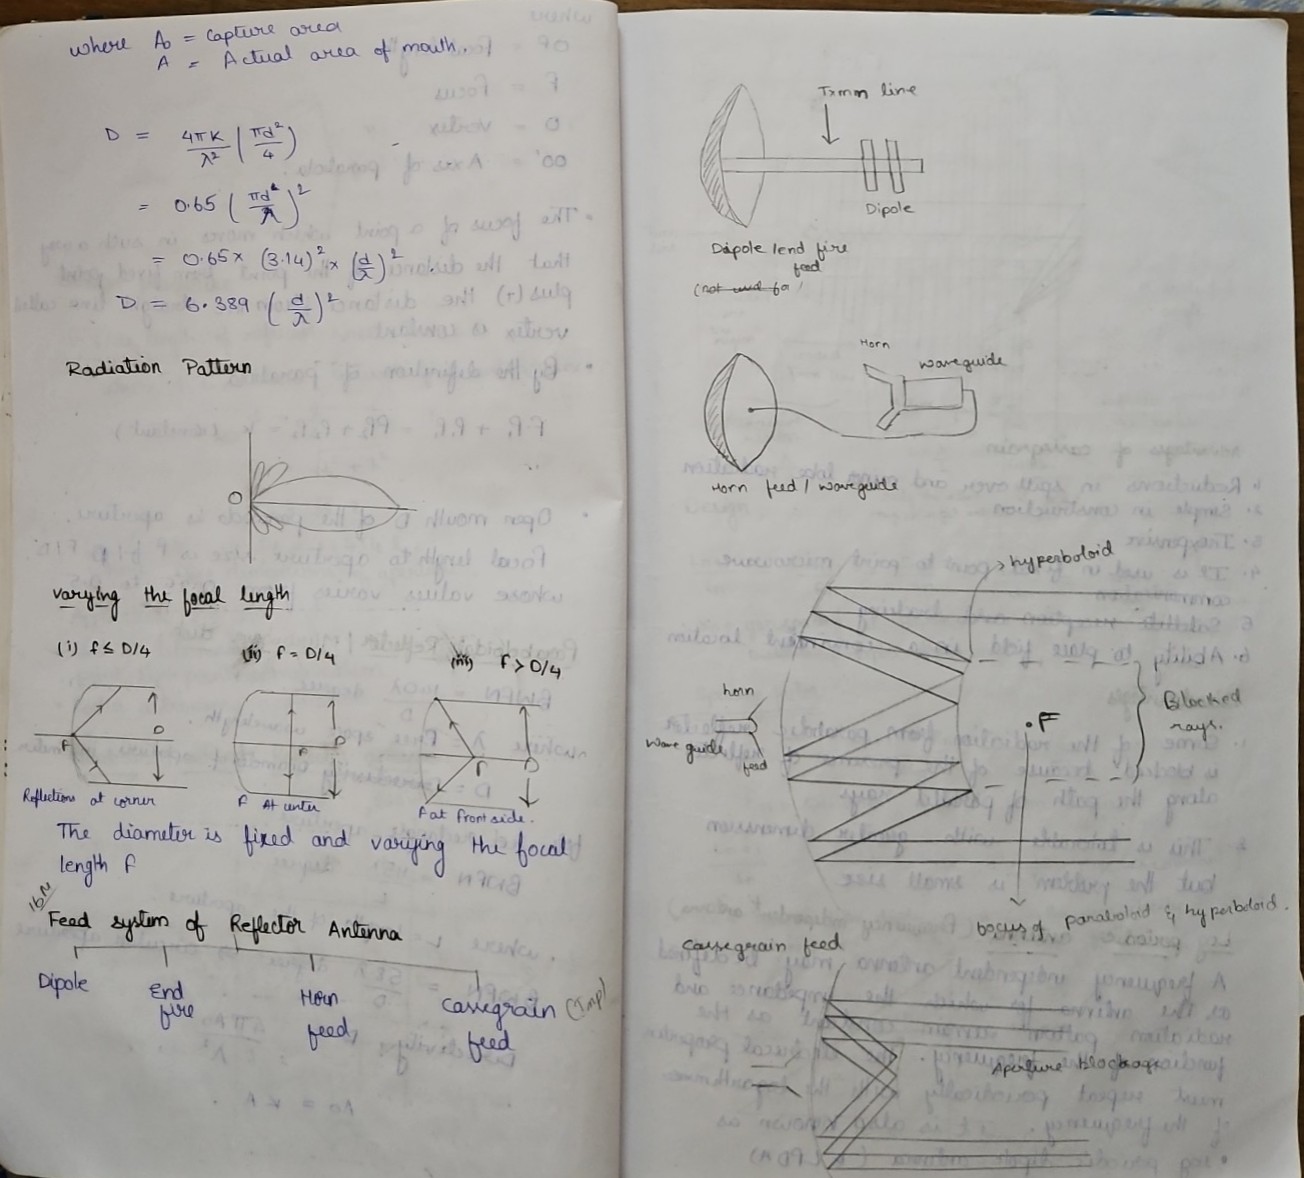 where A₀ = Capture area
A = Actual area of mouth.
D = 4πK/λ² (πd²/4)
= 0.65 (πd/λ)²
= 0.65 x (3.14)² x (d/λ)²
D = 6.389 (d/λ)²
Radiation Pattern
O
varying the focal length
(i) f ≤ D/4 (ii) f = D/4 (iii) f > D/4
F D F D F D
Reflections at corner F At center F at front side.
The diameter is fixed and varying the focal
length f
16M
Feed system of Reflector Antenna
Dipole End fire Horn feed, Cassegrain feed (Imp)
Txmn line
Dipole
Dipole / end fire
feed
(not used fo
Horn
waveguide
Horn feed / waveguide
hyperboloid
horn
wave guide
feed
.F
Blocked
rays.
focus of paraboloid & hyperboloid.
Cassegrain feed
Aperture Blockage